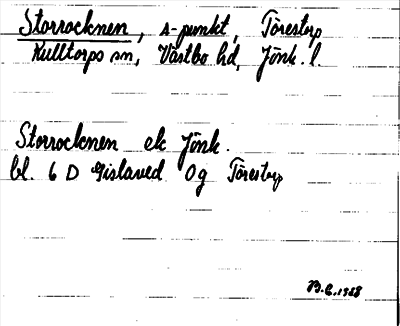 Storrocknen, s-punkt, Törestorp
Kulltorps sn, Västbo hd, Jönk. l
Storrocknen ek Jönk.
bl. 6 D Gislaved 0g Törestorp
1988